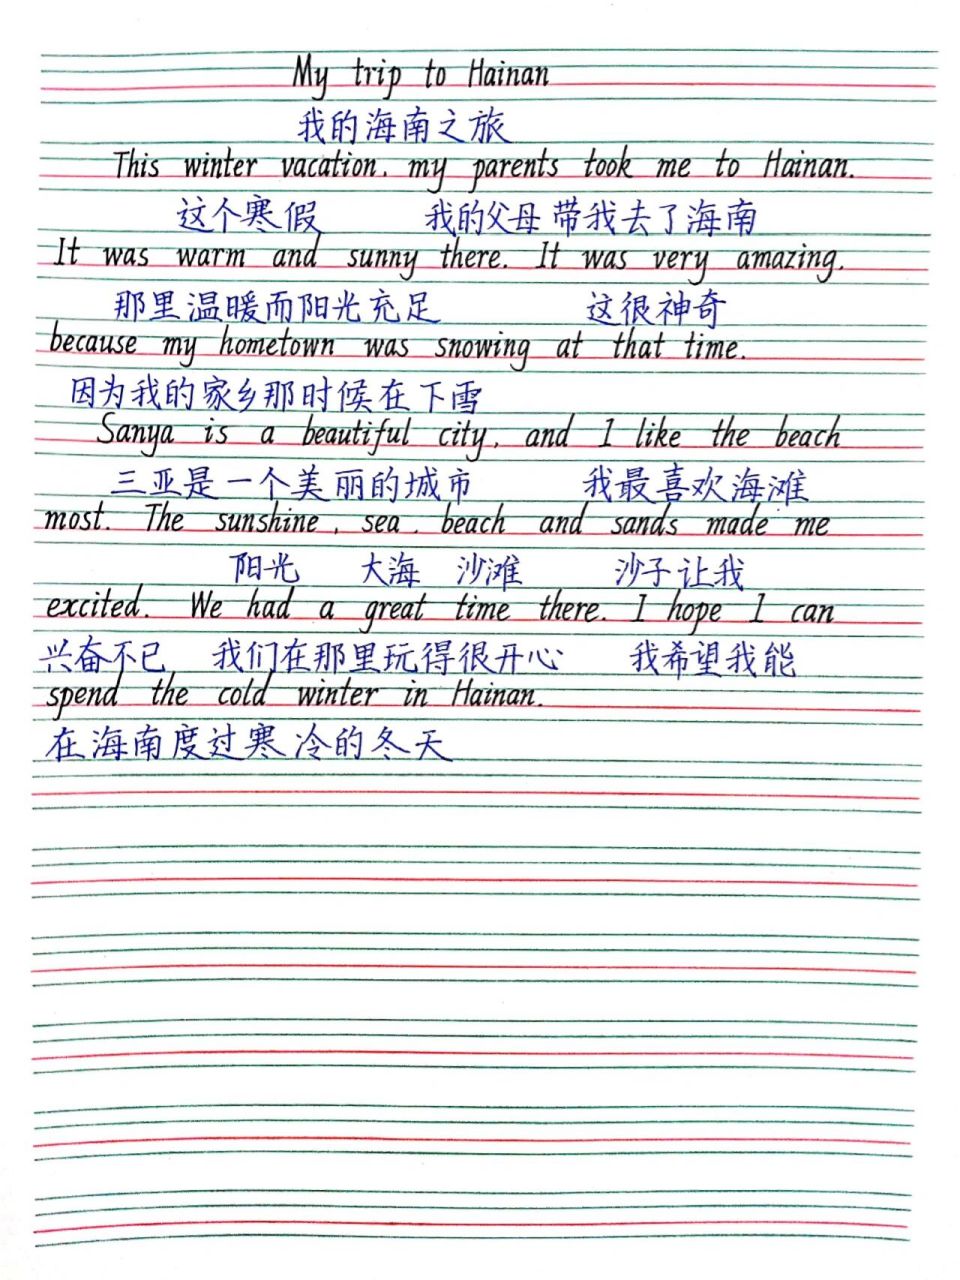 My trip to Hainan
我的海南之旅
This winter vacation, my parents took me to Hainan.
这个寒假 我的父母带我去了海南
It was warm and sunny there. It was very amazing,
那里温暖而阳光充足 这很神奇
because my hometown was snowing at that time.
因为我的家乡那时候在下雪
Sanya is a beautiful city, and I like the beach
三亚是一个美丽的城市 我最喜欢海滩
most. The sunshine, sea, beach and sands made me
阳光 大海 沙滩 沙子让我
excited. We had a great time there. I hope I can
兴奋不已 我们在那里玩得很开心 我希望我能
spend the cold winter in Hainan.
在海南度过寒冷的冬天